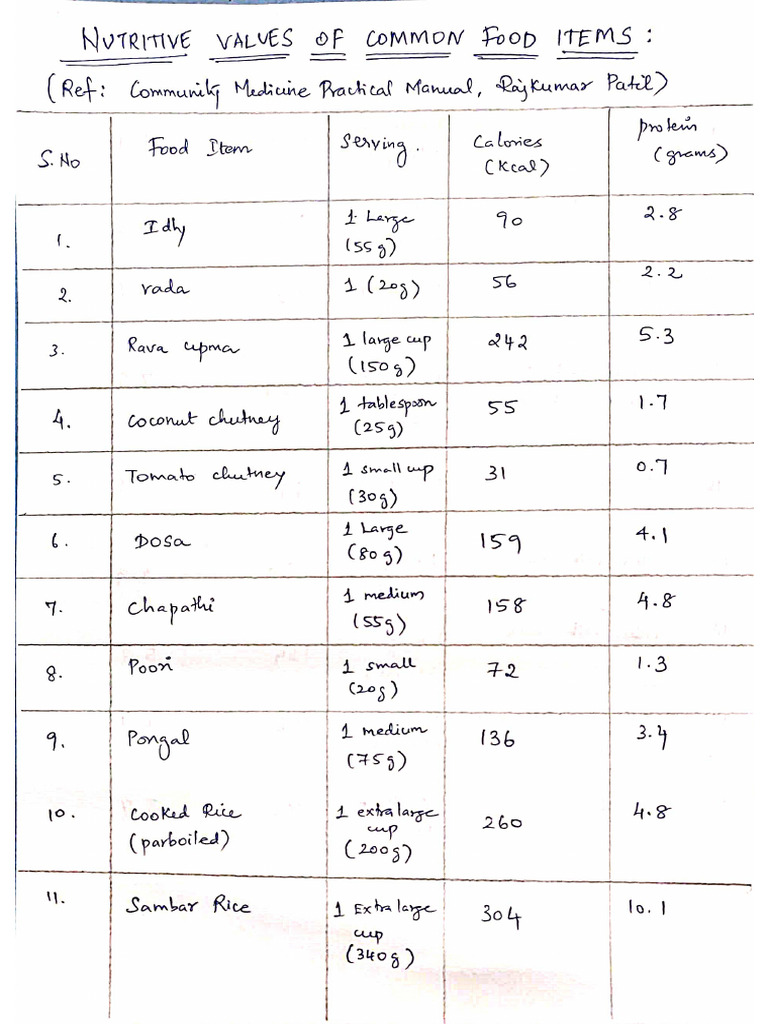 NUTRITIVE VALUES OF COMMON FOOD ITEMS :
(Ref: Community Medicine Practical Manual, Rajkumar Patil)
S.No Food Item Serving. Calories (Kcal) protein (grams)
1. Idly 1 Large (55g) 90 2.8
2. vada 1 (20g) 56 2.2
3. Rava upma 1 large cup (150g) 242 5.3
4. Coconut chutney 1 tablespoon (25g) 55 1.7
5. Tomato chutney 1 small cup (30g) 31 0.7
6. Dosa 1 Large (80g) 159 4.1
7. Chapathi 1 medium (55g) 158 4.8
8. Poori 1 small (20g) 72 1.3
9. Pongal 1 medium (75g) 136 3.4
10. Cooked Rice (parboiled) 1 extra large cup (200g) 260 4.8
11. Sambar Rice 1 Extra large cup (340g) 304 10.1